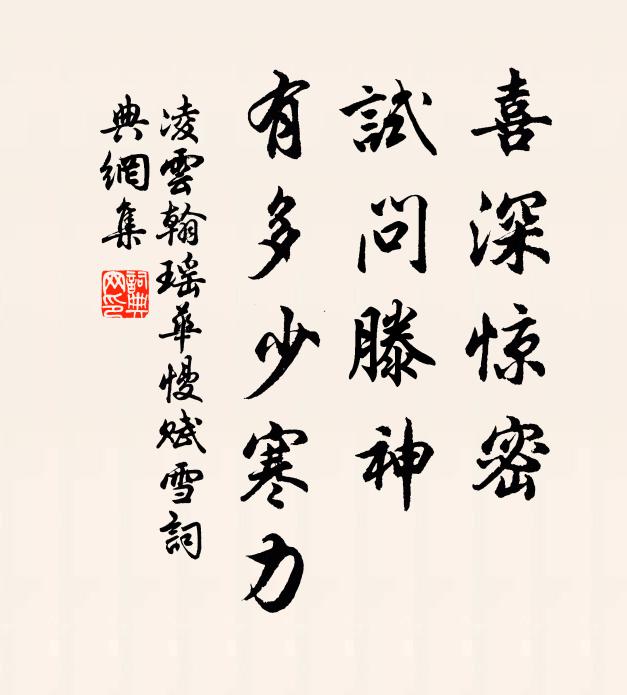 喜深惊密
試問滕神
有多少寒力
凌雲翰瑶華慢賦雪詞
典網集
詞典
网印